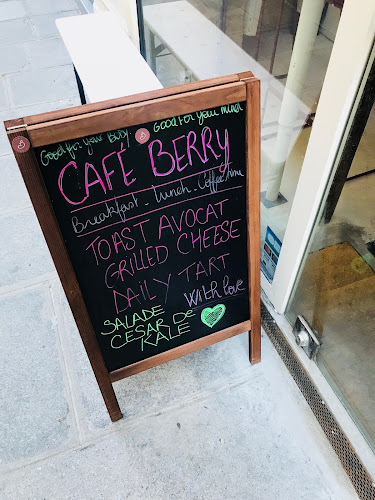 Good for your BODY. Good for your mind
CAFÉ BERRY
Breakfast - Lunch - Coffee time
TOAST AVOCAT
GRILLED CHEESE
DAILY TART
With love
SALADE
CESAR De
KALE